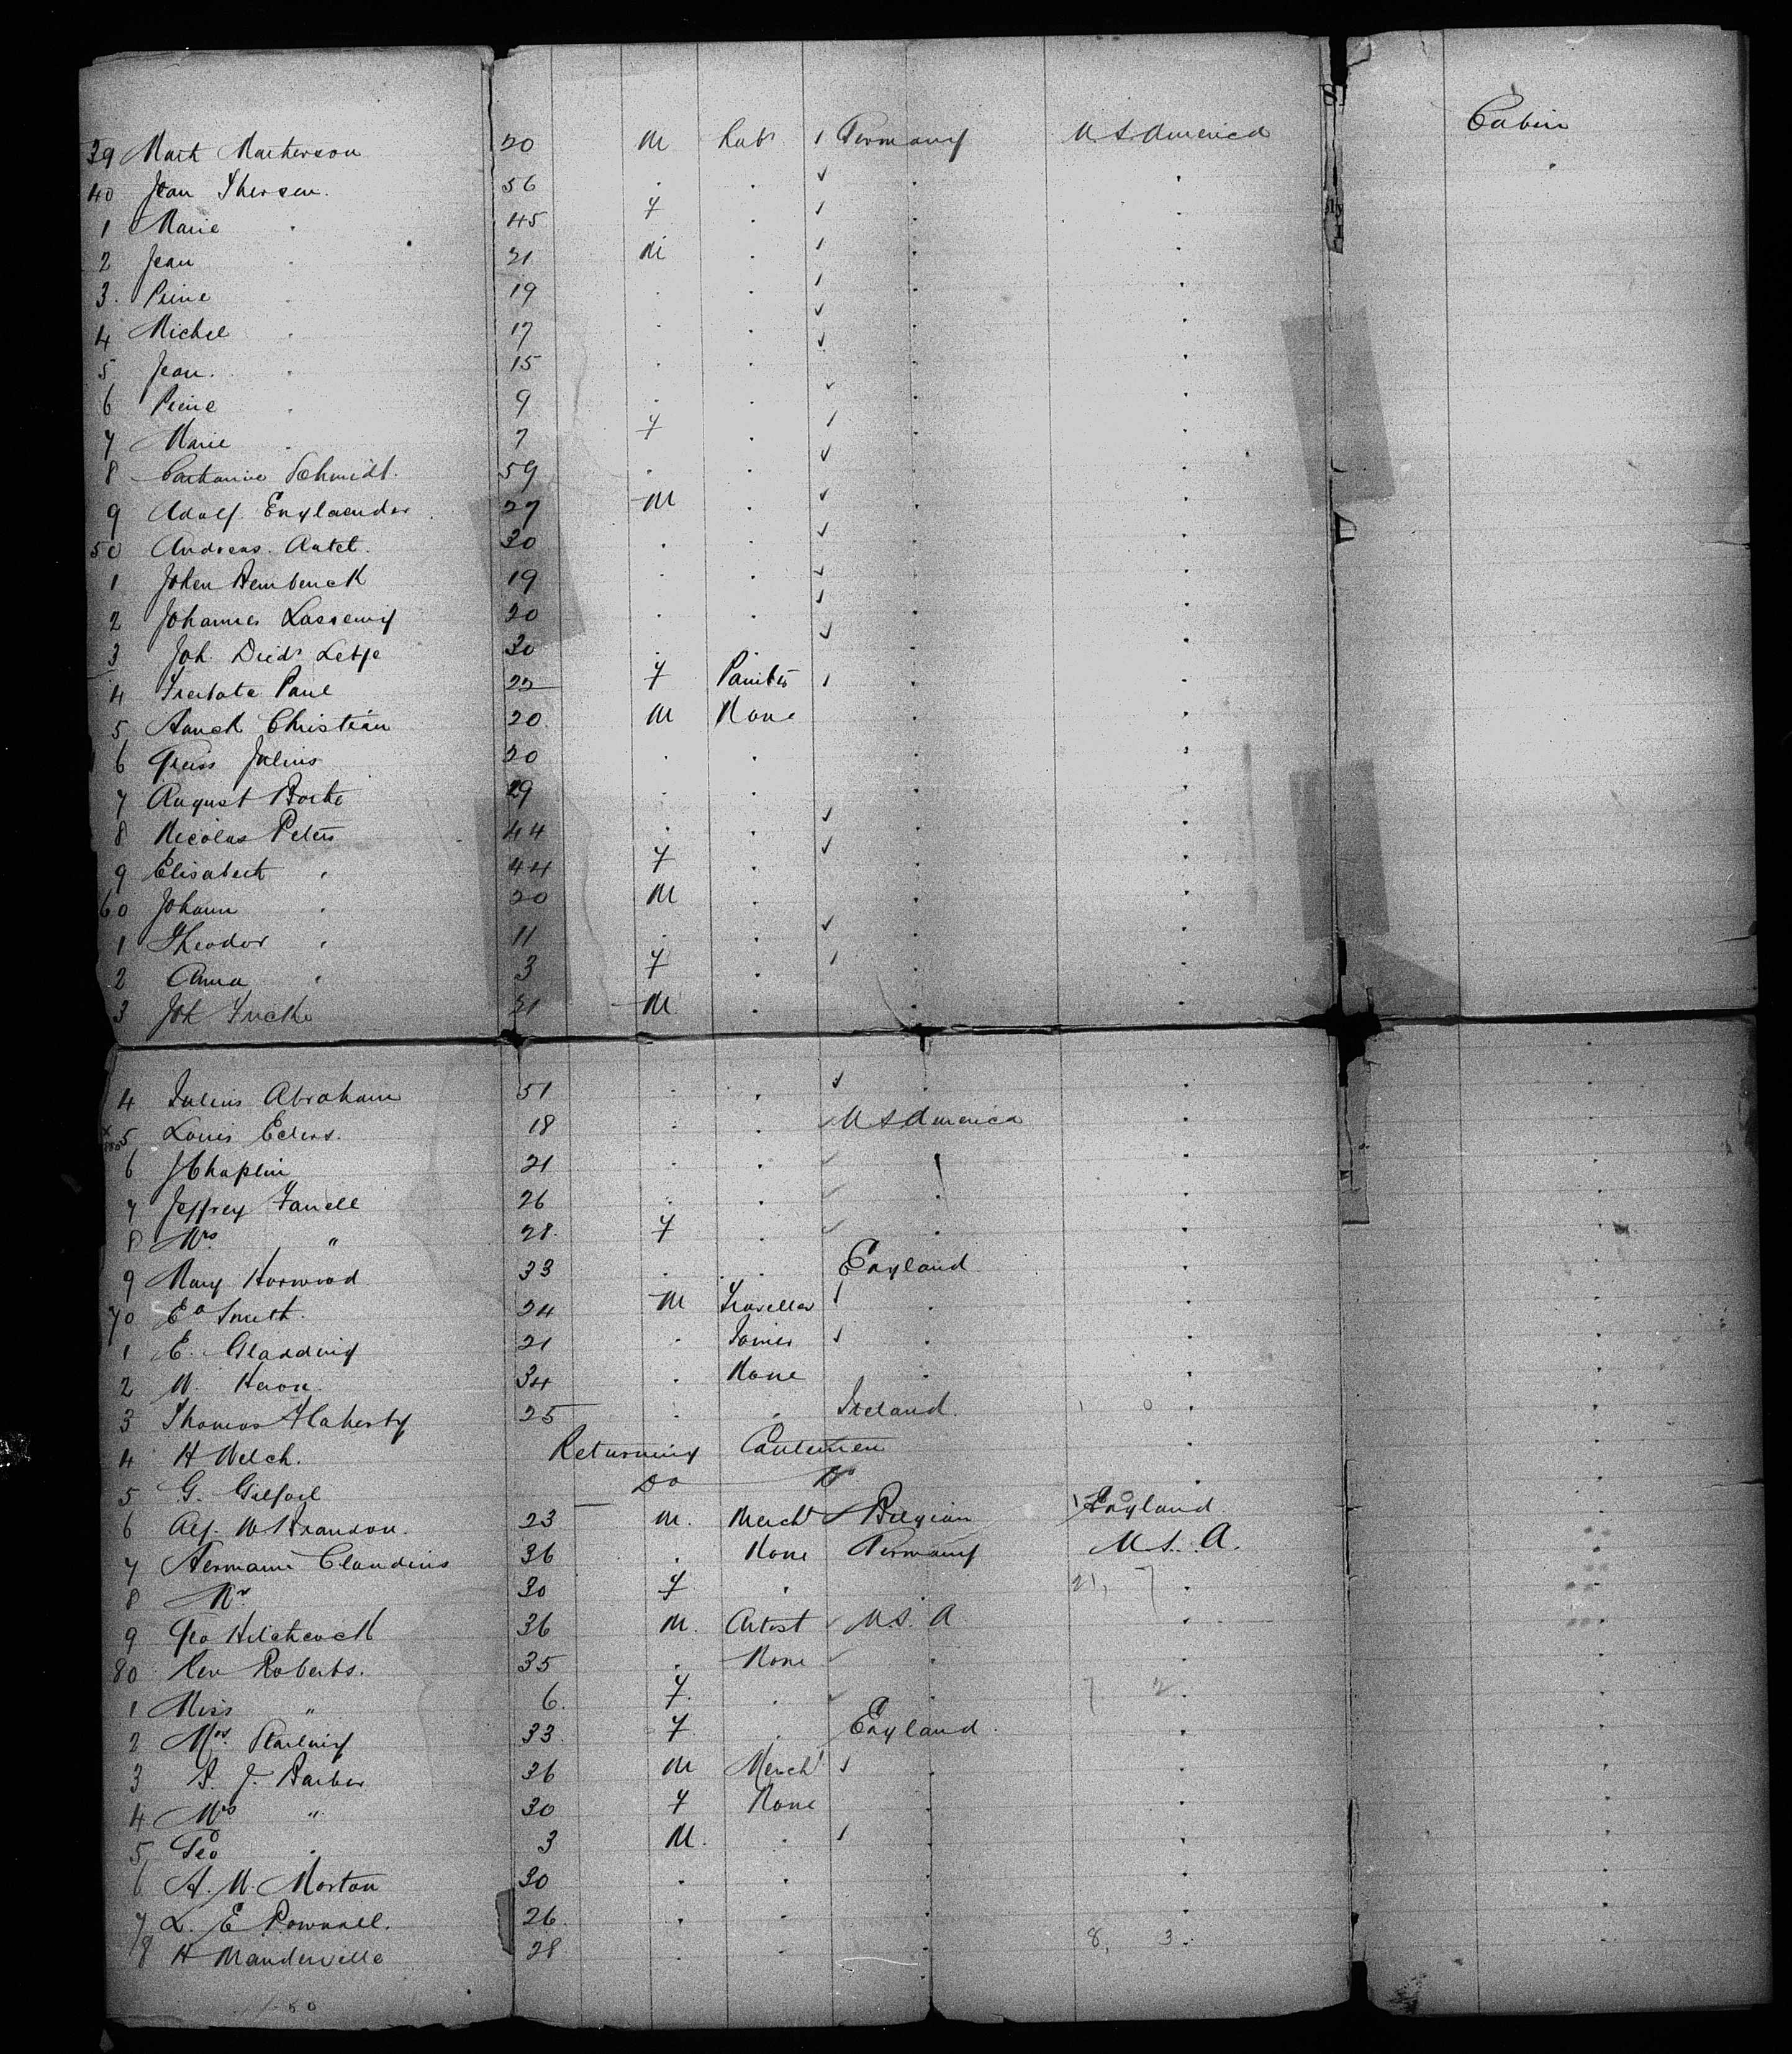 39 Mark Markerson 20 M Labr Germany U S America Cabin
40 Jean Thersen. 56 . . . .
1 Marie . 45 F . . .
2 Jean . 21 M . . .
3. Peirre . 19 . . . .
4 Michel . 17 . . . .
5 Jean. . 15 . . . .
6 Peirre . 9 . . . .
7 Marie . 7 F . . .
8 Catharine Schmidt. 59 . . . .
9 Adolf Englaender 27 M . . .
50 Andreas 30 . . . .
1 Johen 19 . . . .
2 Johannes 20 . . . .
3 Joh Died. 30 . . . .
4 Paul 22 F . .
5 Christian 20 M None . .
6 Julius 20 . . . .
7 August 29 . . . .
8 Nicolas Peters 44 . . . .
9 Elisabeth " 44 F . . .
60 Johann " 20 M . . .
1 Theodor " 11 . . . .
2 Anna " 3 F . . .
3 Joh Fricke 21 M . . .
4 Julius Abraham 51 . . . . .
5 Louis 18 . . U S America . .
6 J Chaplin 21 . . . .
7 Jeffrey 26 . . . . .
8 Mrs " 28 F . . . .
9 Mary Horwood 33 . . England . .
70 Ed Smith. 24 M Traveller . . .
1 E. Gladding 21 . . . .
2 W. 34 . None . . .
3 Thomas Flaherty 25 . . Ireland . .
4 H Welch. Returning Cattlemen . .
5 G. Gilfoil Do Do . .
6 Alf. W Brandon. 23 M. Mercht Belgian England .
7 Hermann Claudius 36 . None Germany U. S. A. .
8 Mrs 30 F . . .
9 Geo Hitchcock 36 M. Artist U. S. A . .
80 Rev Roberts. 35 . None . . .
1 Miss " 6. F. . . .
2 Mrs. 33. F. . England. . .
3 S. J. Barber 36 M Mercht . . .
4 Mrs " 30 F None . . .
5 Geo . 3 M. . . .
6 A. W. Morton 30 . . . .
7 L. E Pownall. 26. . . . . .
8 H Manderville 28 . . . . .